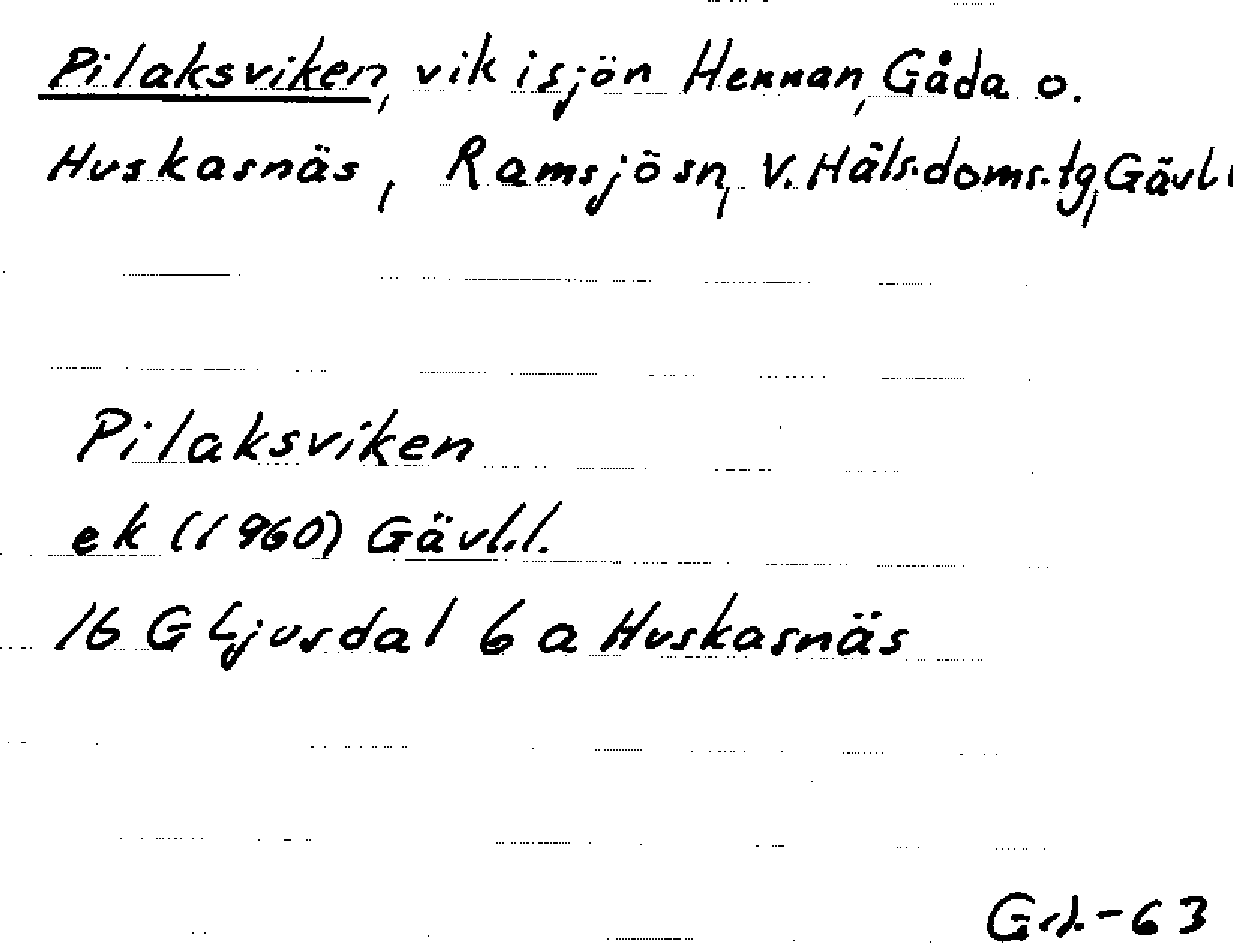 Pilaksviken, vik i sjön Hennan, Gåda o.
Huskasnäs, Ramsjö sn, V. Häls. doms. tg, Gävl. l
Pilaksviken
ek (1960) Gävl. l.
16 G Ljusdal 6 a Huskasnäs
-63